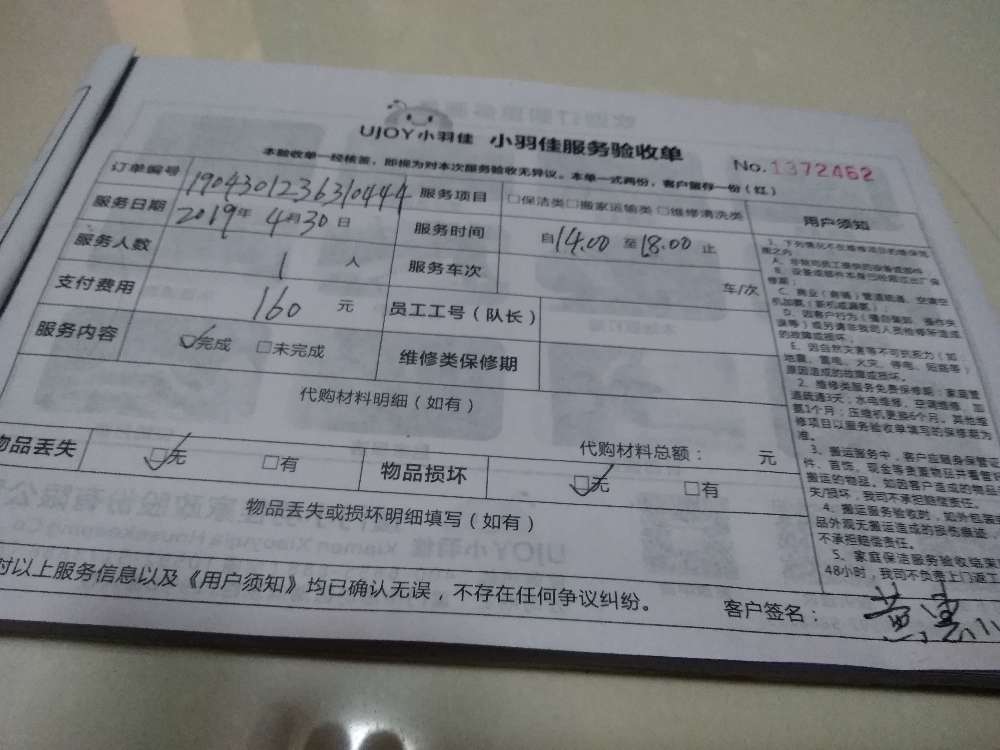 UJOY小羽佳 小羽佳服务验收单
No.1372452
本验收单一经核签，即视为对本次服务验收无异议。本单一式两份，客户留存一份（红）
订单编号 1904301236310444 服务项目 □保洁类□搬家运输类□维修清洗类 用户须知
服务日期 2019年4月30日 服务时间 自14.00至18.00止
服务人数 1 人 服务车次 车/次
支付费用 160 元 员工工号（队长）
服务内容 完成 □未完成 维修类保修期
代购材料明细（如有）
代购材料总额： 元
物品丢失 无 □有 物品损坏 无 □有
物品丢失或损坏明细填写（如有）
对以上服务信息以及《用户须知》均已确认无误，不存在任何争议纠纷。 客户签名：
1、下列情况不在维修项目的维保范
围之内
A、非我司员工提供的设备或部件
B、设备或部件本身已经超过出厂保
修期；
D、因客户行为（
的故障或损坏；
E、因自然灾害等不可抗拒力（如
地震、雷电、火灾、停电、短路等）
原因造成的故障或损坏。
2、维修类服务免费保修期：家庭管
道疏通3天；水电维修、空调维修、加
氨1个月；压缩机更换6个月。其他维
修项目以服务验收单填写的保修期为
准。
3、搬运服务中，客户应随身保管证
件、首饰、现金等贵重物品并看管
搬运的物品。如因客户造成的物品
失/损坏，我司不承担赔偿责任。
4、搬运服务验收时，如外包装
品外观无搬运造成的损伤痕迹，
不承担赔偿责任。
5、家庭保洁服务验收结束
48小时，我司不负责上门返工